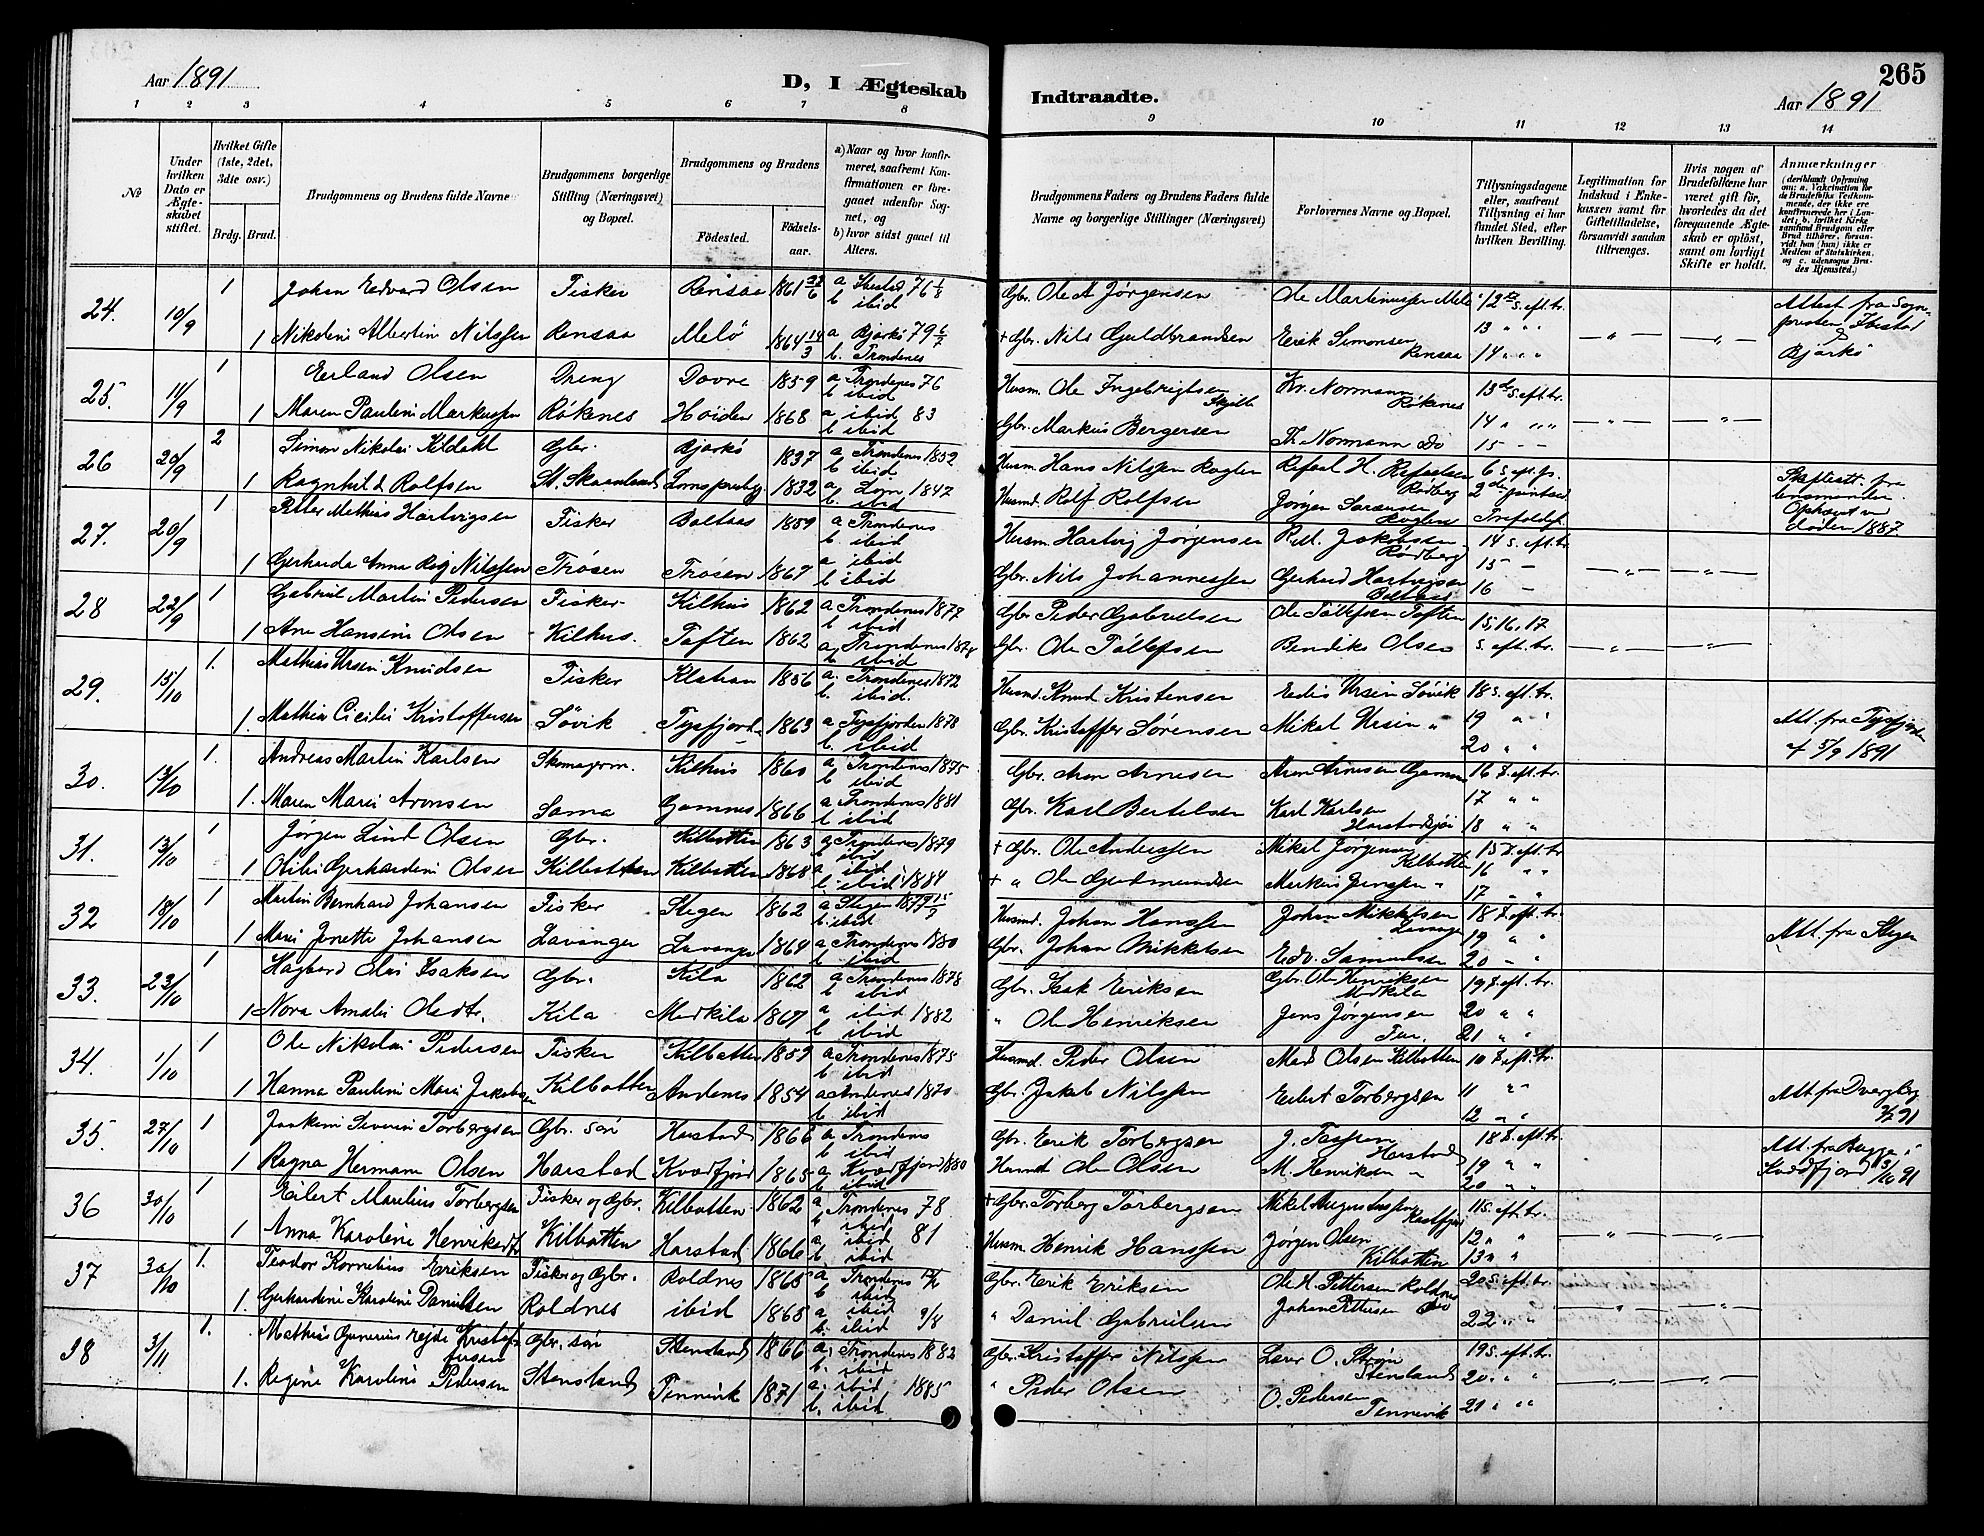 Aar 1891
D, I Ægteskab
Indtraadte.
265
Aar 1891
1 2 3 4 5 6 7 8 9 10 11 12 13 14
№
Under hvilken Dato er Ægteskabet stiftet.
Hvilket Gifte (1ste, 2det, 3die osv.)
Brdg. Brud.
Brudgommens og Brudens fulde Navne
Brudgommens borgerlige Stilling (Næringsvei) og Bopæl.
Brudgommens og Brudens
Fødested.
Fødselsaar.
a) Naar og hvor konfirmeret, saafremt Konfirmationen er foregaaet udenfor Sognet, og
b) hvor sidst gaaet til Alters.
Brudgommens Faders og Brudens Faders fulde Navne og borgerlige Stillinger (Næringsvei)
Forlovernes Navne og Bopæl.
Tillysningsdagene eller, saafremt Tillysning ei har fundet Sted, efter hvilken Bevilling.
Legitimation for Indskud i Enkekassen samt for Giftetilladelse, forsaavidt saadan tiltrænges.
Hvis nogen af Brudefolkene har været gift før, hvorledes da det foregaaende Ægteskab er opløst, samt om lovligt Skifte er holdt.
Anmærkninger
(deriblandt Oplysning om: a. Vakcination for de Brudefolks Vedkommende, der ikke ere konfirmerede her i Landet; b. hvilket Kirkesamfund Brudgom eller Brud tilhører, forsaavidt han (hun) ikke er Medlem af Statskirken, og c. udensogns Brudes Hjemsted.)
24. 10/9 1 Johan Edvard Olsen Fisker Rensaa 1861 22/6 a Ibestad 76 b ibid Gbr. Ole A Jørgensen Ole Martinussen Melø 12te S. eft. tr. Attest fra Sognepresten i Ibestad
1 Nikoline Albertin Nilssen Rensaa Melö 1864 14/3 a Bjarkö 79 b. Trondenes + Gbr. Nils Guldbrandsen Erik Simonsen Rensaa 13 14 & Bjarkö
25. 11/9 1 Erland Olsen Dreng Dovre 1859 a Trondenes 76 b ibid Husm. Ole Ingebrigtsen Kr. Normann Rökenes 13de S. eft. tr.
1 Maren Pauline Markussen Rökenes Höiden 1868 a ibid 83 b ibid Gbr. Markus Bergersen Th. Normann do 14 15
26 20/9 2 Simon Nikolai Kildahl Gbr. Bjarkö 1837 a Trondenes 1852 b ibid Husm. Hans Nilssen Roglen Refael H. Refaelsen Rødberg 6 s. eft. p. Skifteatt. fra lensmanden.
1 Ragnhild Rolfsen St. Skaanland 1832 a Lom 1847 b. ibid Husmd. Rolf Rolfsen Jörgen Sørensen Roglen 2den Trefoldigh. døden 1887.
27. 20/9 1 Petter Mathias Hartvigsen Fisker Boltaas 1859 a Trondenes b. ibid Husm. Hartvig Jørgensen Jakobsen Rødberg 14 s. eft. tr.
1 Gerharda Anna Nilssen Trøsen Trøsen 1867 a ibid b ibid Gbr. Nils Johannessen Gerhard Hartvigsen Boltaas 15 16
28 22/9 1 Gabriel Martin Pedersen Fisker Kilhus 1862 a Trondenes 1878 b ibid Gbr. Peder Gabrielsen Ole Tollefsen Toften 15, 16, 17
1 Ane Hansine Olsen Kilhus. Toften 1862 a Trondenes 1878 b ibid Gbr. Ole Tollefsen Bendiks Olsen s. eft. tr.
29. 15/10 1. Mathias Ursin Knudsen Fisker 1856 a. Trondenes 1872 b. ibid. Husmd. Knud Kristensen Edis Ursin Søvik 18 s. eft. tr.
1. Mathia Cicilie Kristoffersen Søvik Tysfjord 1863 a Tysfjorden 1878 b. ibid Gbr. Kristoffer Sørensen Mikal Ursin 19 20 Att. fra Tysfjorden af 5/9 1891
30. 13/10 1. Andreas Martin Karlsen Skomagerm. Kilhus 1860 a Trondenes 1875 b ibid Gbr. Aron Arnesen Aron Arnesen Gamnes 16 s. eft. tr.
1. Maren Marie Aronsen Sama Gamnes 1866 a Trondenes 1881 b ibid Gbr. Karl Bertelsen Karl Karlsen Harstadsjöi 17 18
31. 13/10 1 Jörgen Lind Olsen Gbr. Kilbotten 1863 a Trondenes 1879 b ibid + Gbr. Ole Andersen Mikal Jørgensen Kilbotten 15 S. eft. tr.
1 Otilie Gerhardine Olsen Kilbotten Kilbotten 1868 a ibid b. ibid 1884 + " Ole Gudmundsen Markus Jenssen 16 17
32 18/10 1 Martin Bernhard Johansen Fisker Stegen 1862 a Stegen 1877 b. ibid Husmd. Johan Hanssen Johan Mikkelsen Lavanger 18 S. eft. tr.
1 Marie Jenette Johansen Lavanger Lavanger 1864 a Trondenes 1880 b. ibid Gbr. Johan Mikkelsen Edv. Samuelsen 19 20 Att. fra Stegen
33. 23/10 1 Hagbard Olai Isaksen Gbr. Kila 1862 a Trondenes 1878 b ibid Gbr. Isak Eriksen Gbr. Ole Henriksen Medkila 19 S. eft. tr.
1 Nora Amalie Olsdtr. Kila Medkila 1867 a ibid 1882 b ibid " Ole Henriksen Jens Jørgensen 20 21
34. 1/10 1 Ole Nikolai Pedersen Fisker Kilbotten 1859 a Trondenes 1875 b ibid Husmd. Peder Olsen Mad Olsen Kilbotten 10 S. eft. tr.
1 Hanna Pauline Marie Jakobsen Kilbotten Andenes 1854 a Andenes 1870 b. ibid Gbr. Jakob Nilssen Eilert Torbergsen 11 12 Att. fra Dverberg 91
35. 27/10 1 Joakim Severin Torbergsen Gbr. sön Harstad 1866 a. Trondenes b. ibid Gbr. Erik Torbergsen J. Harstad 18 S. eft. tr.
1 Ragna Hermana Olsen Harstad Kvædfjord 1865 a Kvædfjord 1880 b. ibid Husmd Ole Olsen M. Henriksen 19 20 91
36 30/10 1 Eilert Marelius Torbergsen Fisker og Gbr. Kilbotten 1862 a Trondenes 78 b. ibid + Gbr. Torberg Torbergsen Mikal Augustinssen 11 S. eft. tr.
1 Anna Karoline Henriksdtr Kilbotten Harstad 1866 a ibid 81 b. ibid Husm. Henrik Hanssen Jørgen Olsen Kilbotten 12 13
37 30/10 1. Teodor Kornelius Eriksen Fisker og Gbr. Roldnes 1865 a Trondenes b. ibid Gbr. Erik Eriksen Ole A. Pettersen Roldnes 20 S. eft. tr.
1. Gerhardine Karoline Danielsen Roldnes ibid 1865 a ibid b. ibid " Daniel Gabrielsen Johan Pettersen do 22
38 3/11 1. Mathias Gunerius Kristoffersen Gbr. sön Stensland 1866 a. Trondenes 1882 b. ibid Gbr. Kristoffer Nilssen Laur O. Stensland 19 S. eft. tr.
1. Regine Karoline Pedersen Stensland Tennevik 1871 a. ibid 1885 b. ibid " Peder Olsen O. Pedersen Tennevik 20 21